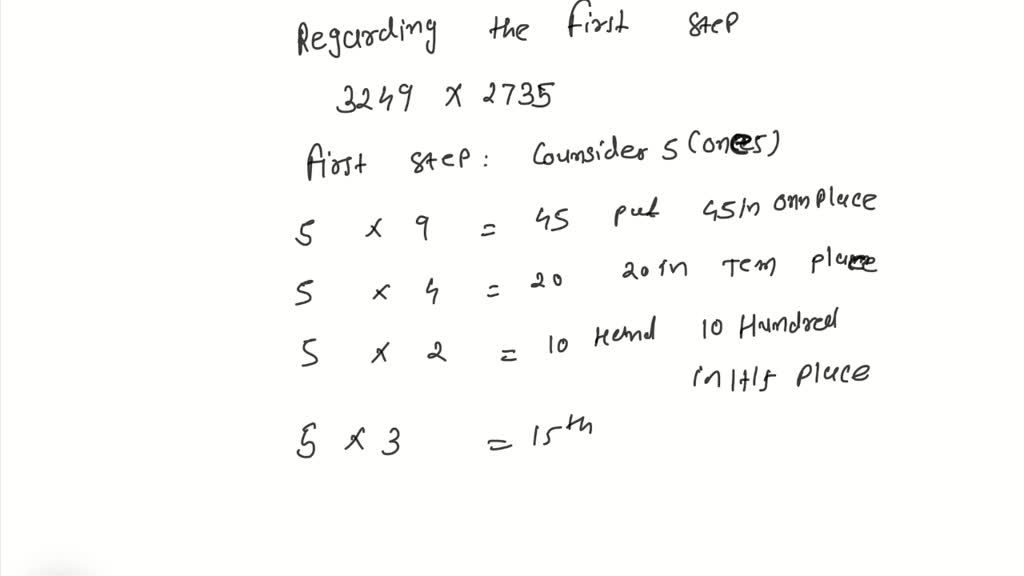 Regarding the first step
3249 x 2735
first step: Counsider 5 (ones)
5 x 9 = 45 put 45 in onn place
5 x 4 = 20 20 in Tem place
5 x 2 = 10 Hund 10 Hundred
in place
5 x 3 = 15 th